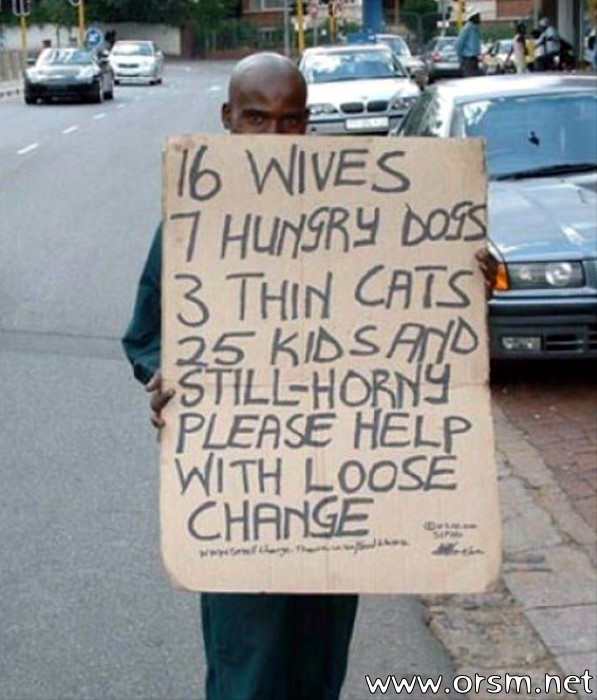 16 WIVES
7 HUNGRY DOGS
3 THIN CATS
25 KIDS AND
STILL-HORNY
PLEASE HELP
WITH LOOSE
CHANGE
www.orsm.net